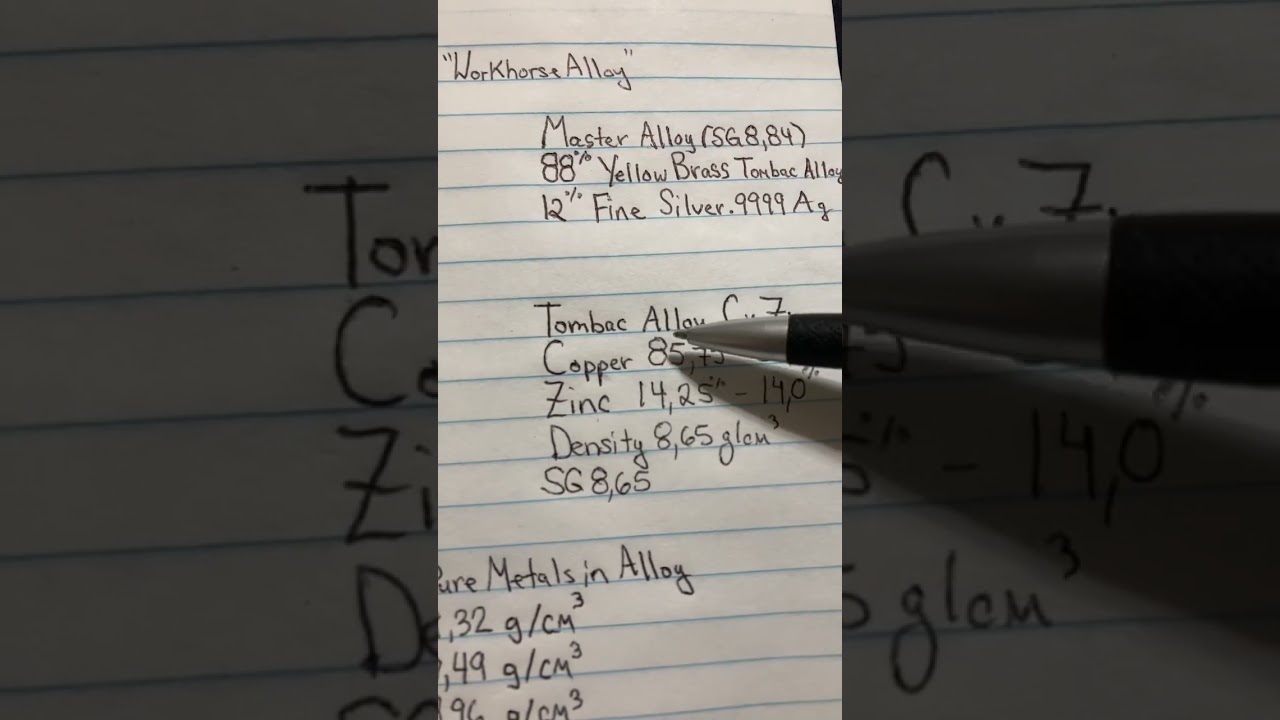 "Workhorse Alloy"
Master Alloy (SG 8,84)
88% Yellow Brass Tombac Alloy
12% Fine Silver .9999 Ag
Tombac Alloy
Copper 85,75
Zinc 14,25% - 14,0%
Density 8,65 g/cm³
SG 8,65
Pure Metals in Alloy
,32 g/cm³
,49 g/cm³
96 g/cm³